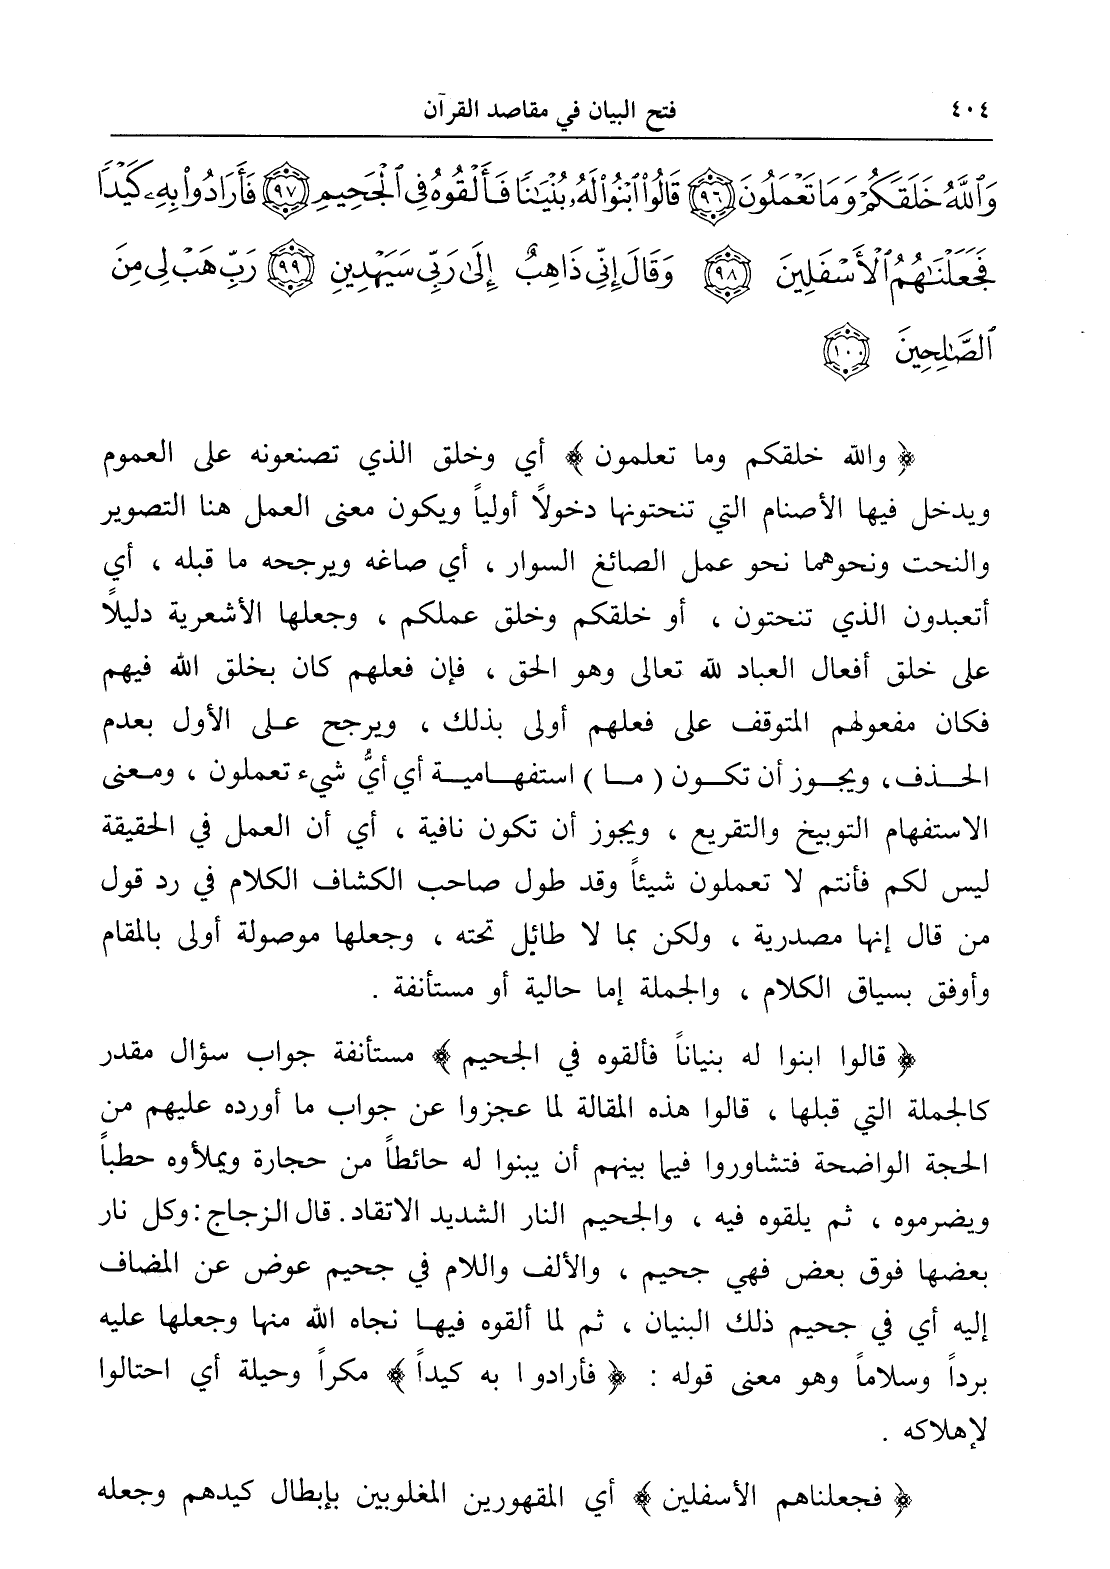 ٤٠٤ فتح البيان في مقاصد القرآن
وَٱللَّهُ خَلَقَكُمْ وَمَا تَعْمَلُونَ ﴿٩٦﴾ قَالُوا۟ ٱبْنُوا۟ لَهُۥ بُنْيَٰنًا فَأَلْقُوهُ فِى ٱلْجَحِيمِ ﴿٩٧﴾ فَأَرَادُوا۟ بِهِۦ كَيْدًا
فَجَعَلْنَٰهُمُ ٱلْأَسْفَلِينَ ﴿٩٨﴾ وَقَالَ إِنِّى ذَاهِبٌ إِلَىٰ رَبِّى سَيَهْدِينِ ﴿٩٩﴾ رَبِّ هَبْ لِى مِنَ
ٱلصَّٰلِحِينَ ﴿١٠٠﴾
﴿ والله خلقكم وما تعلمون ﴾ أي وخلق الذي تصنعونه على العموم
ويدخل فيها الأصنام التي تنحتونها دخولاً أولياً ويكون معنى العمل هنا التصوير
والنحت ونحوهما نحو عمل الصائغ السوار ، أي صاغه ويرجحه ما قبله ، أي
أتعبدون الذي تنحتون ، أو خلقكم وخلق عملكم ، وجعلها الأشعرية دليلاً
على خلق أفعال العباد لله تعالى وهو الحق ، فإن فعلهم كان بخلق الله فيهم
فكان مفعولهم المتوقف على فعلهم أولى بذلك ، ويرجح على الأول بعدم
الحذف، ويجوز أن تكون ( ما ) استفهامية أي أيُّ شيء تعملون ، ومعنى
الاستفهام التوبيخ والتقريع ، ويجوز أن تكون نافية ، أي أن العمل في الحقيقة
ليس لكم فأنتم لا تعملون شيئاً وقد طول صاحب الكشاف الكلام في رد قول
من قال إنها مصدرية ، ولكن بما لا طائل تحته ، وجعلها موصولة أولى بالمقام
وأوفق بسياق الكلام ، والجملة إما حالية أو مستأنفة .
﴿ قالوا ابنوا له بنياناً فألقوه في الجحيم ﴾ مستأنفة جواب سؤال مقدر
كالجملة التي قبلها ، قالوا هذه المقالة لما عجزوا عن جواب ما أورده عليهم من
الحجة الواضحة فتشاوروا فيما بينهم أن يبنوا له حائطاً من حجارة ويملأوه حطباً
ويضرموه ، ثم يلقوه فيه ، والجحيم النار الشديد الاتقاد. قال الزجاج: وكل نار
بعضها فوق بعض فهي جحيم ، والألف واللام في جحيم عوض عن المضاف
إليه أي في جحيم ذلك البنيان ، ثم لما ألقوه فيها نجاه الله منها وجعلها عليه
برداً وسلاماً وهو معنى قوله : ﴿ فأرادوا به كيداً ﴾ مكراً وحيلة أي احتالوا
لإهلاكه .
﴿ فجعلناهم الأسفلين ﴾ أي المقهورين المغلوبين بإبطال كيدهم وجعله